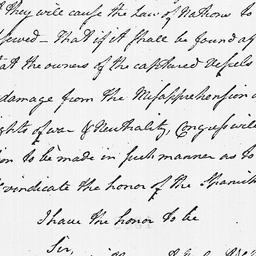 they will cause the Law of Nations to
served - That if it shall be found af
at the owners of the captured Vessels
damage from the Misapprehension o
ghts of war & Neutrality, Congress will
ion to be made in such manner as to
vindicate the honor of the Spanish
I have the honor to be
Sir,